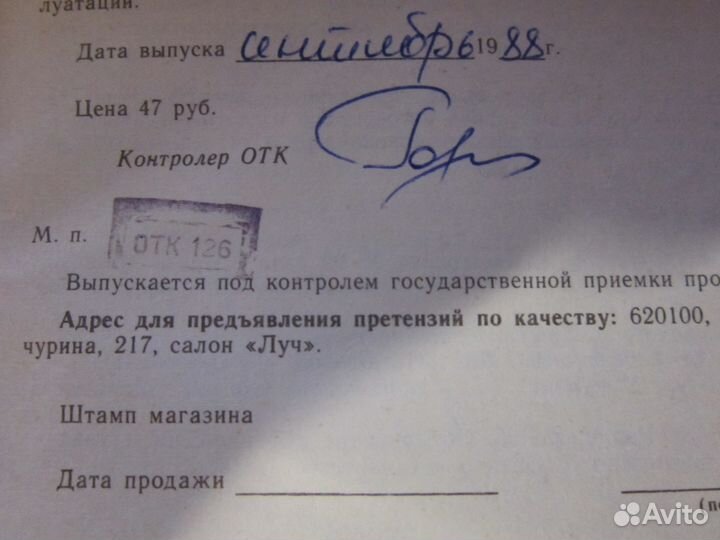 луатации.
Дата выпуска сентябрь 1988 г.
Цена 47 руб.
Контролер ОТК
М. п. ОТК 126
Выпускается под контролем государственной приемки про
Адрес для предъявления претензий по качеству: 620100,
чурина, 217, салон «Луч».
Штамп магазина
Дата продажи
(п
Avito